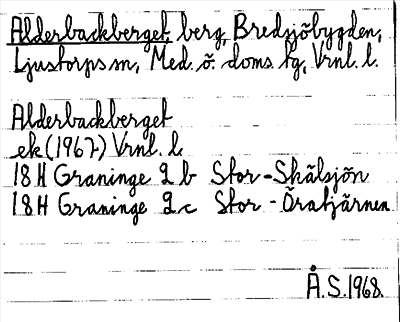 Alderbackberget, berg, Bredsjöbygden,
Ljustorps sn, Med. ö. doms tg, Vrnl. l.
Alderbackberget
ek (1967) Vrnl. l.
18H Graninge 2 b Stor-Skälsjön
18H Graninge 2 c Stor-Öratjärnen
Å.S.1968.